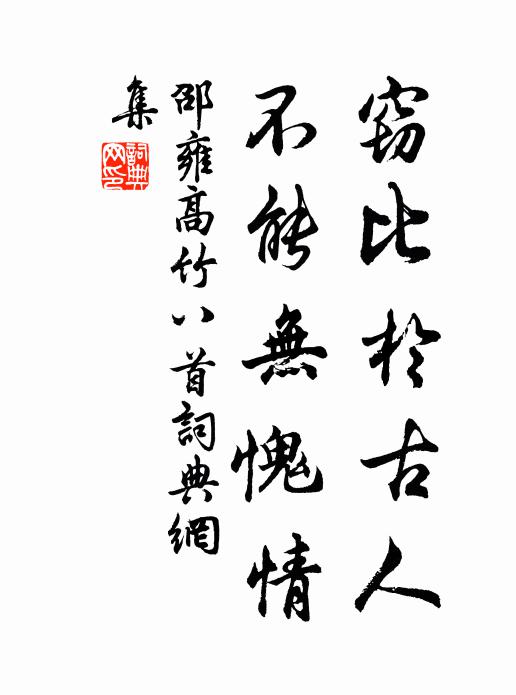 窈比於古人
不能無愧情
邵雍高竹八首詞典網
集
詞典
网印